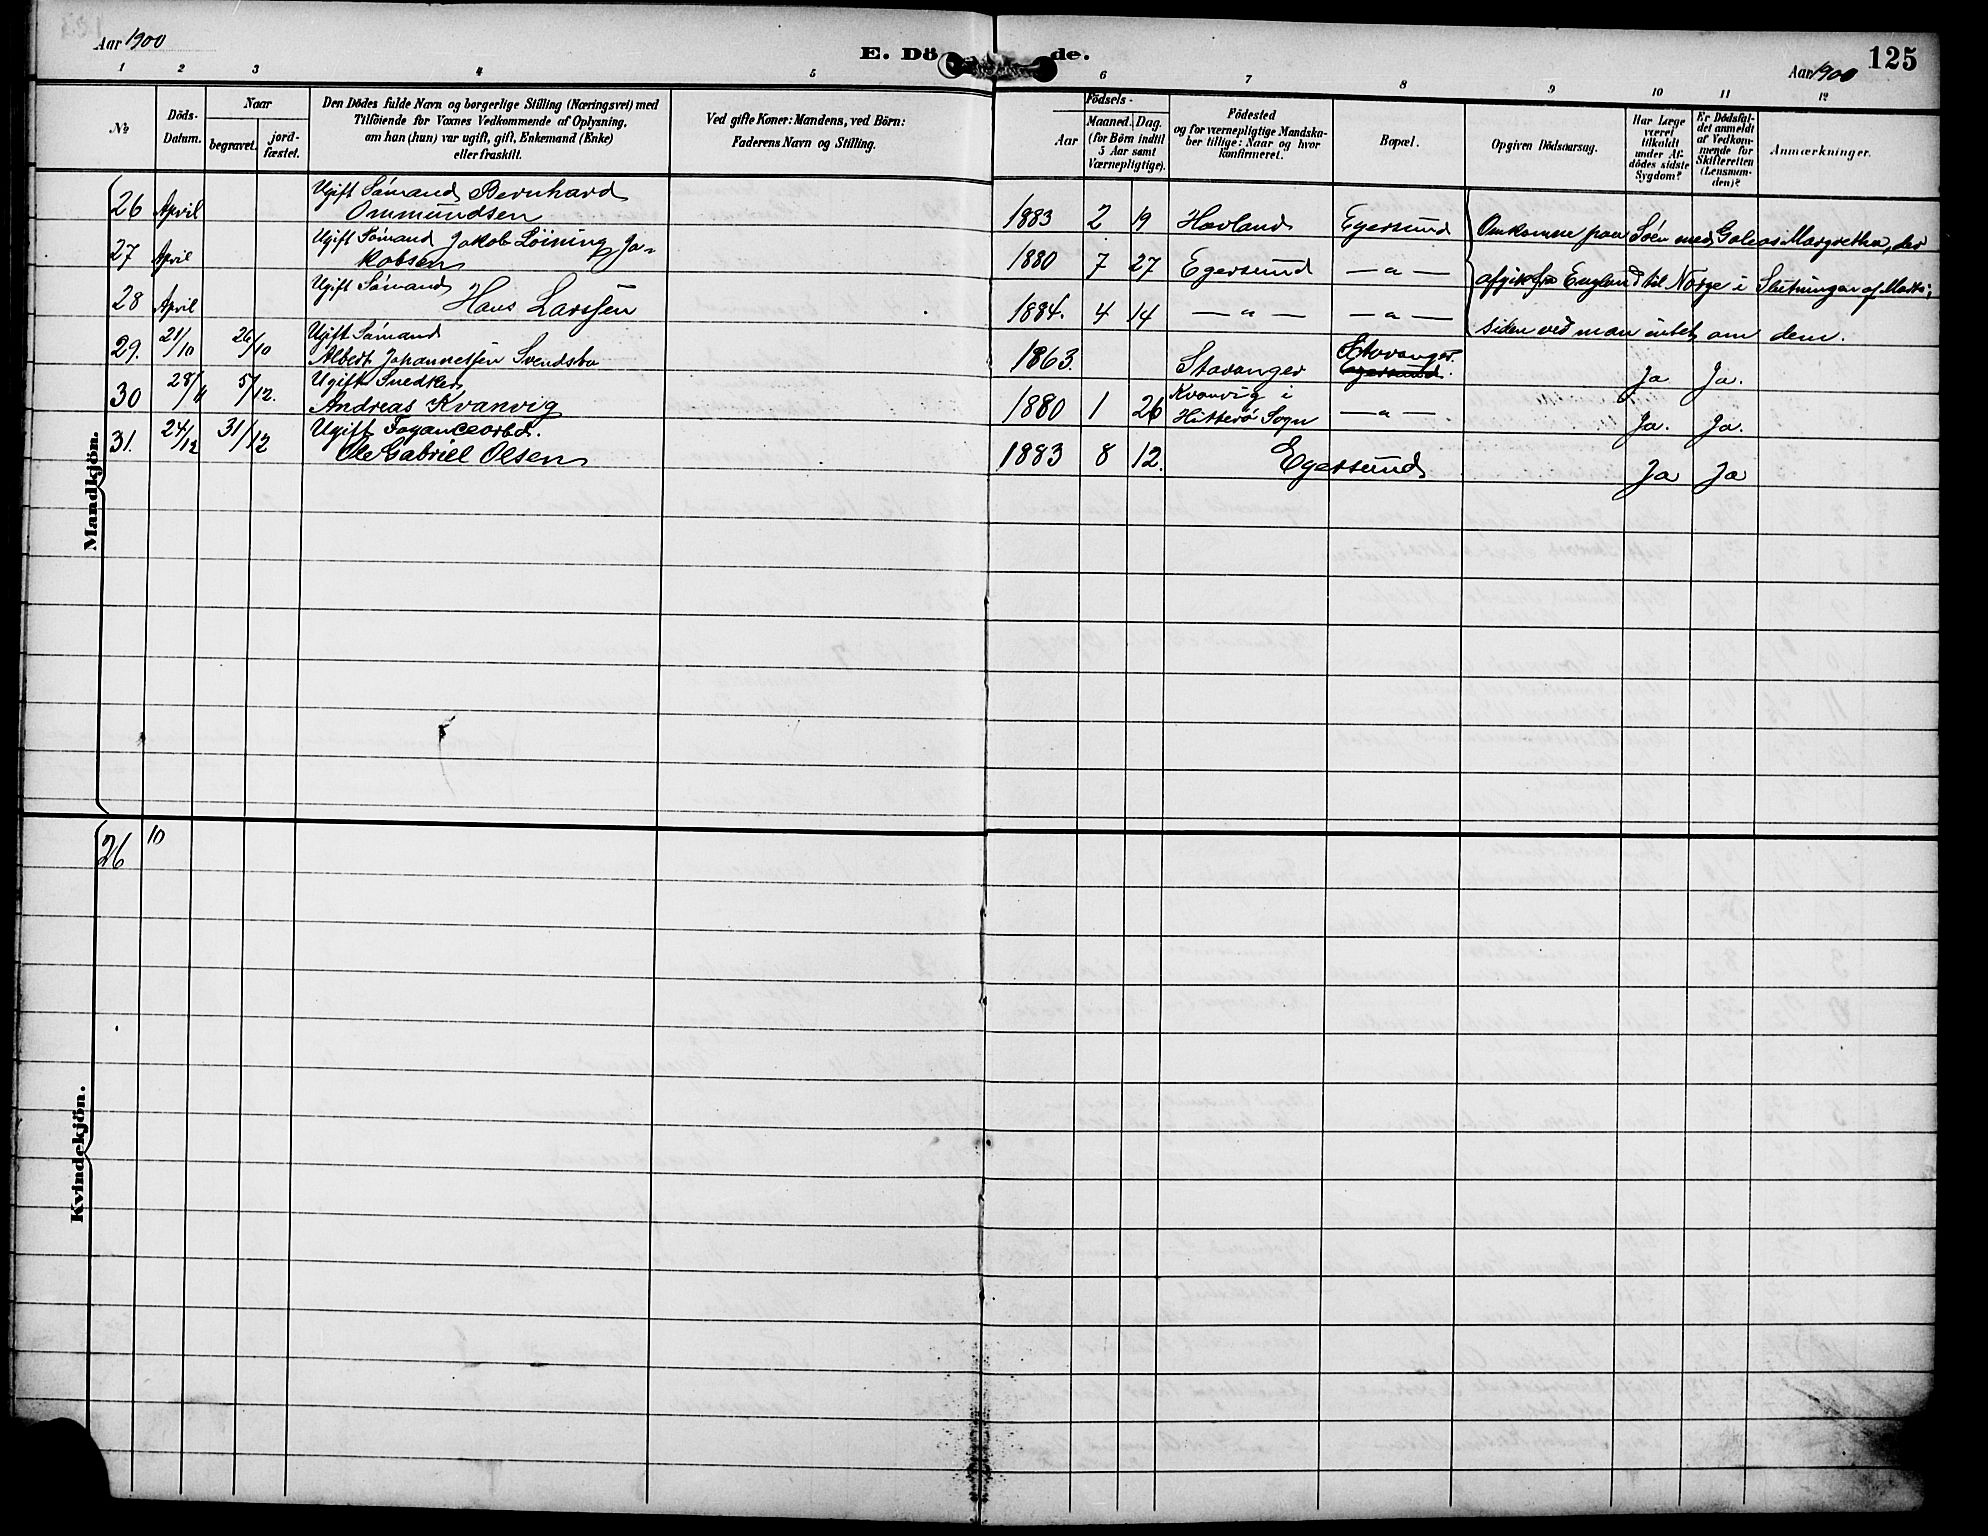 Aar 1900
E. Dö de.
Aar 1900
125
1 2 3 4 5 6 7 8 9 10 11 12
No
Döds-
Datum.
Naar
begravet.
jord-
fæstet.
Den Dödes fulde Navn og borgerlige Stilling (Næringsvei) med
Tilföiende for Voxnes Vedkommende af Oplysning,
om han (hun) var ugift, gift, Enkemand (Enke)
eller fraskilt.
Ved gifte Koner: Mandens, ved Börn:
Faderens Navn og Stilling.
Födsels-
Aar
Maaned. Dag.
(for Börn indtil
5 Aar samt
Værnepligtige).
Födested
og for værnepligtige Mandska-
ber tillige: Naar og hvor
konfirmeret.
Bopæl.
Opgiven Dödsaarsag.
Har Læge
været
tilkaldt
under Af-
dödes sidste
Sygdom?
Er Dödsfal-
det anmeldt
af Vedkom-
mende for
Skifteretten
(Lensman-
den)?
Anmærkninger.
Mandkjön.
26 April Ugift Sömand Bernhard
Ommundsen 1883 2 19 Havland Egersund Omkomne paa Söen med Galeas Margretha, der
27 April Ugift Sömand Jakob Löining Ja-
kobsen 1880 7 27 Egersund — " — afgik fra England til Norge i Slutningen af Marts;
28 April Ugift Sömand
Hans Larssen 1884. 4 14 — " — — " — siden ved man intet om dem.
29. 21/10 26/10 Ugift Sömand
Albert Johannessen Svendsbo 1863. Stavanger Stavanger Egersund. Ja Ja.
30 28/11 5/12. Ugift Snedker
Andreas Kvanvig 1880 1 26 Kvanvig i
Hitterö Sogn — " — Ja. Ja.
31. 24/12 31/12 Ugift Fayancearbd.
Ole Gabriel Olsen 1883 8 12. Egersund Ja Ja
Kvindekjön.
26 10